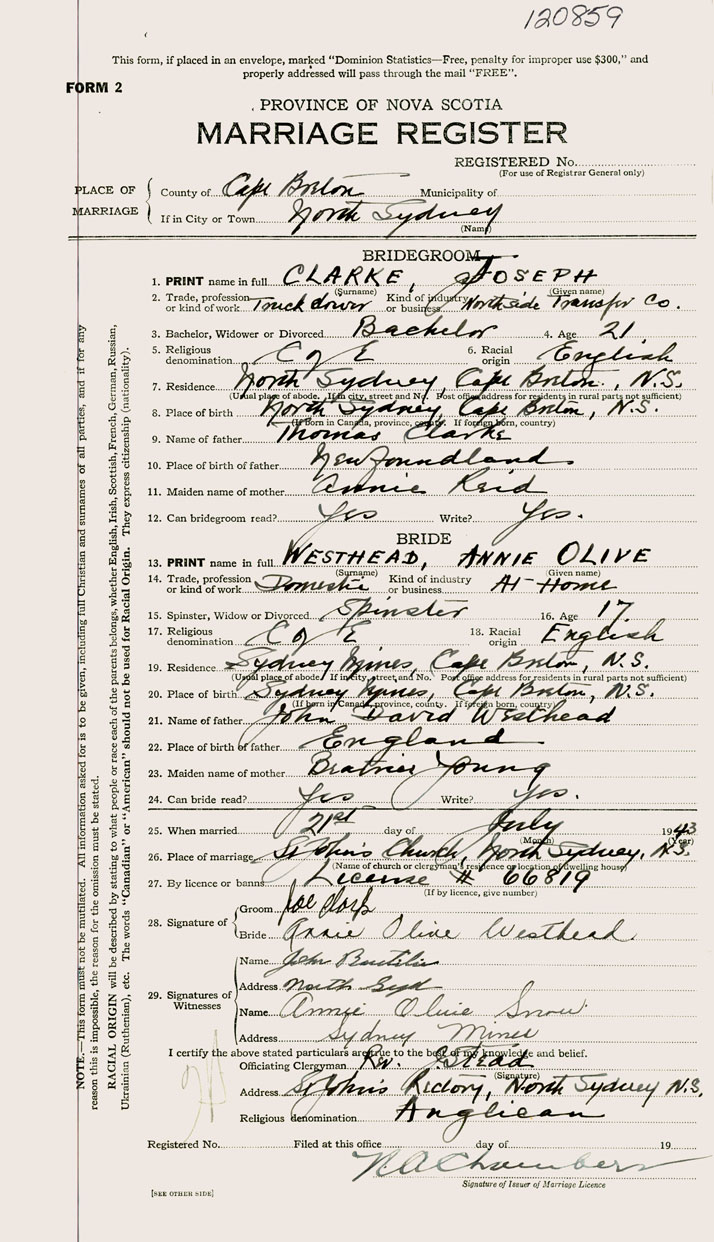 120859
This form, if placed in an envelope, marked "Dominion Statistics—Free, penalty for improper use $300," and
properly addressed will pass through the mail "FREE".
FORM 2
PROVINCE OF NOVA SCOTIA
MARRIAGE REGISTER
REGISTERED No.
(For use of Registrar General only)
PLACE OF MARRIAGE
County of Cape Breton Municipality of
If in City or Town North Sydney
(Name)
BRIDEGROOM
1. PRINT name in full CLARKE, JOSEPH
(Surname) (Given name)
2. Trade, profession or kind of work Truck driver Kind of industry or business Northside Transfer Co.
3. Bachelor, Widower or Divorced Bachelor 4. Age 21
5. Religious denomination C of E 6. Racial origin English
7. Residence North Sydney, Cape Breton, N.S.
(Usual place of abode. If in city, street and No. Post office address for residents in rural parts not sufficient)
8. Place of birth North Sydney, Cape Breton, N.S.
(If Born in Canada, province, county. If foreign born, country)
9. Name of father Thomas Clarke
10. Place of birth of father Newfoundland
11. Maiden name of mother Annie Reid
12. Can bridegroom read? Yes Write? Yes.
BRIDE
13. PRINT name in full WESTHEAD, ANNIE OLIVE
(Surname) (Given name)
14. Trade, profession or kind of work Domestic Kind of industry or business At Home
15. Spinster, Widow or Divorced Spinster 16. Age 17
17. Religious denomination C of E 18. Racial origin English
19. Residence Sydney Mines, Cape Breton, N.S.
(Usual place of abode. If in city, street and No. Post office address for residents in rural parts not sufficient)
20. Place of birth Sydney Mines, Cape Breton, N.S.
(If born in Canada, province, county. If foreign born, country)
21. Name of father John David Westhead
22. Place of birth of father England
23. Maiden name of mother Beatrice Young
24. Can bride read? Yes Write? Yes.
25. When married 21st day of July 1943
(Month) (Year)
26. Place of marriage St John's Church, North Sydney, N.S.
(Name of church or clergyman's residence or location of dwelling house)
27. By licence or banns License # 66819
(If by licence, give number)
28. Signature of
Groom Joe
Bride Annie Olive Westhead
29. Signatures of Witnesses
Name John
Address North Syd
Name Annie Olive Snow
Address Sydney Mines
I certify the above stated particulars are true to the best of my knowledge and belief.
Officiating Clergyman Rev.
(Signature)
Address St John's Rectory, North Sydney N.S.
Religious denomination Anglican
Registered No. Filed at this office day of 19
Chambers
Signature of Issuer of Marriage Licence
[SEE OTHER SIDE]
NOTE.—This form must not be mutilated. All information asked for is to be given, including full Christian and surnames of all parties, and if for any
reason this is impossible, the reason for the omission must be stated.
RACIAL ORIGIN will be described by stating to what people or race each of the parents belongs, whether English, Irish, Scottish, French, German, Russian,
Ukrainian (Ruthenian), etc. The words "Canadian" or "American" should not be used for Racial Origin. They express citizenship (nationality).